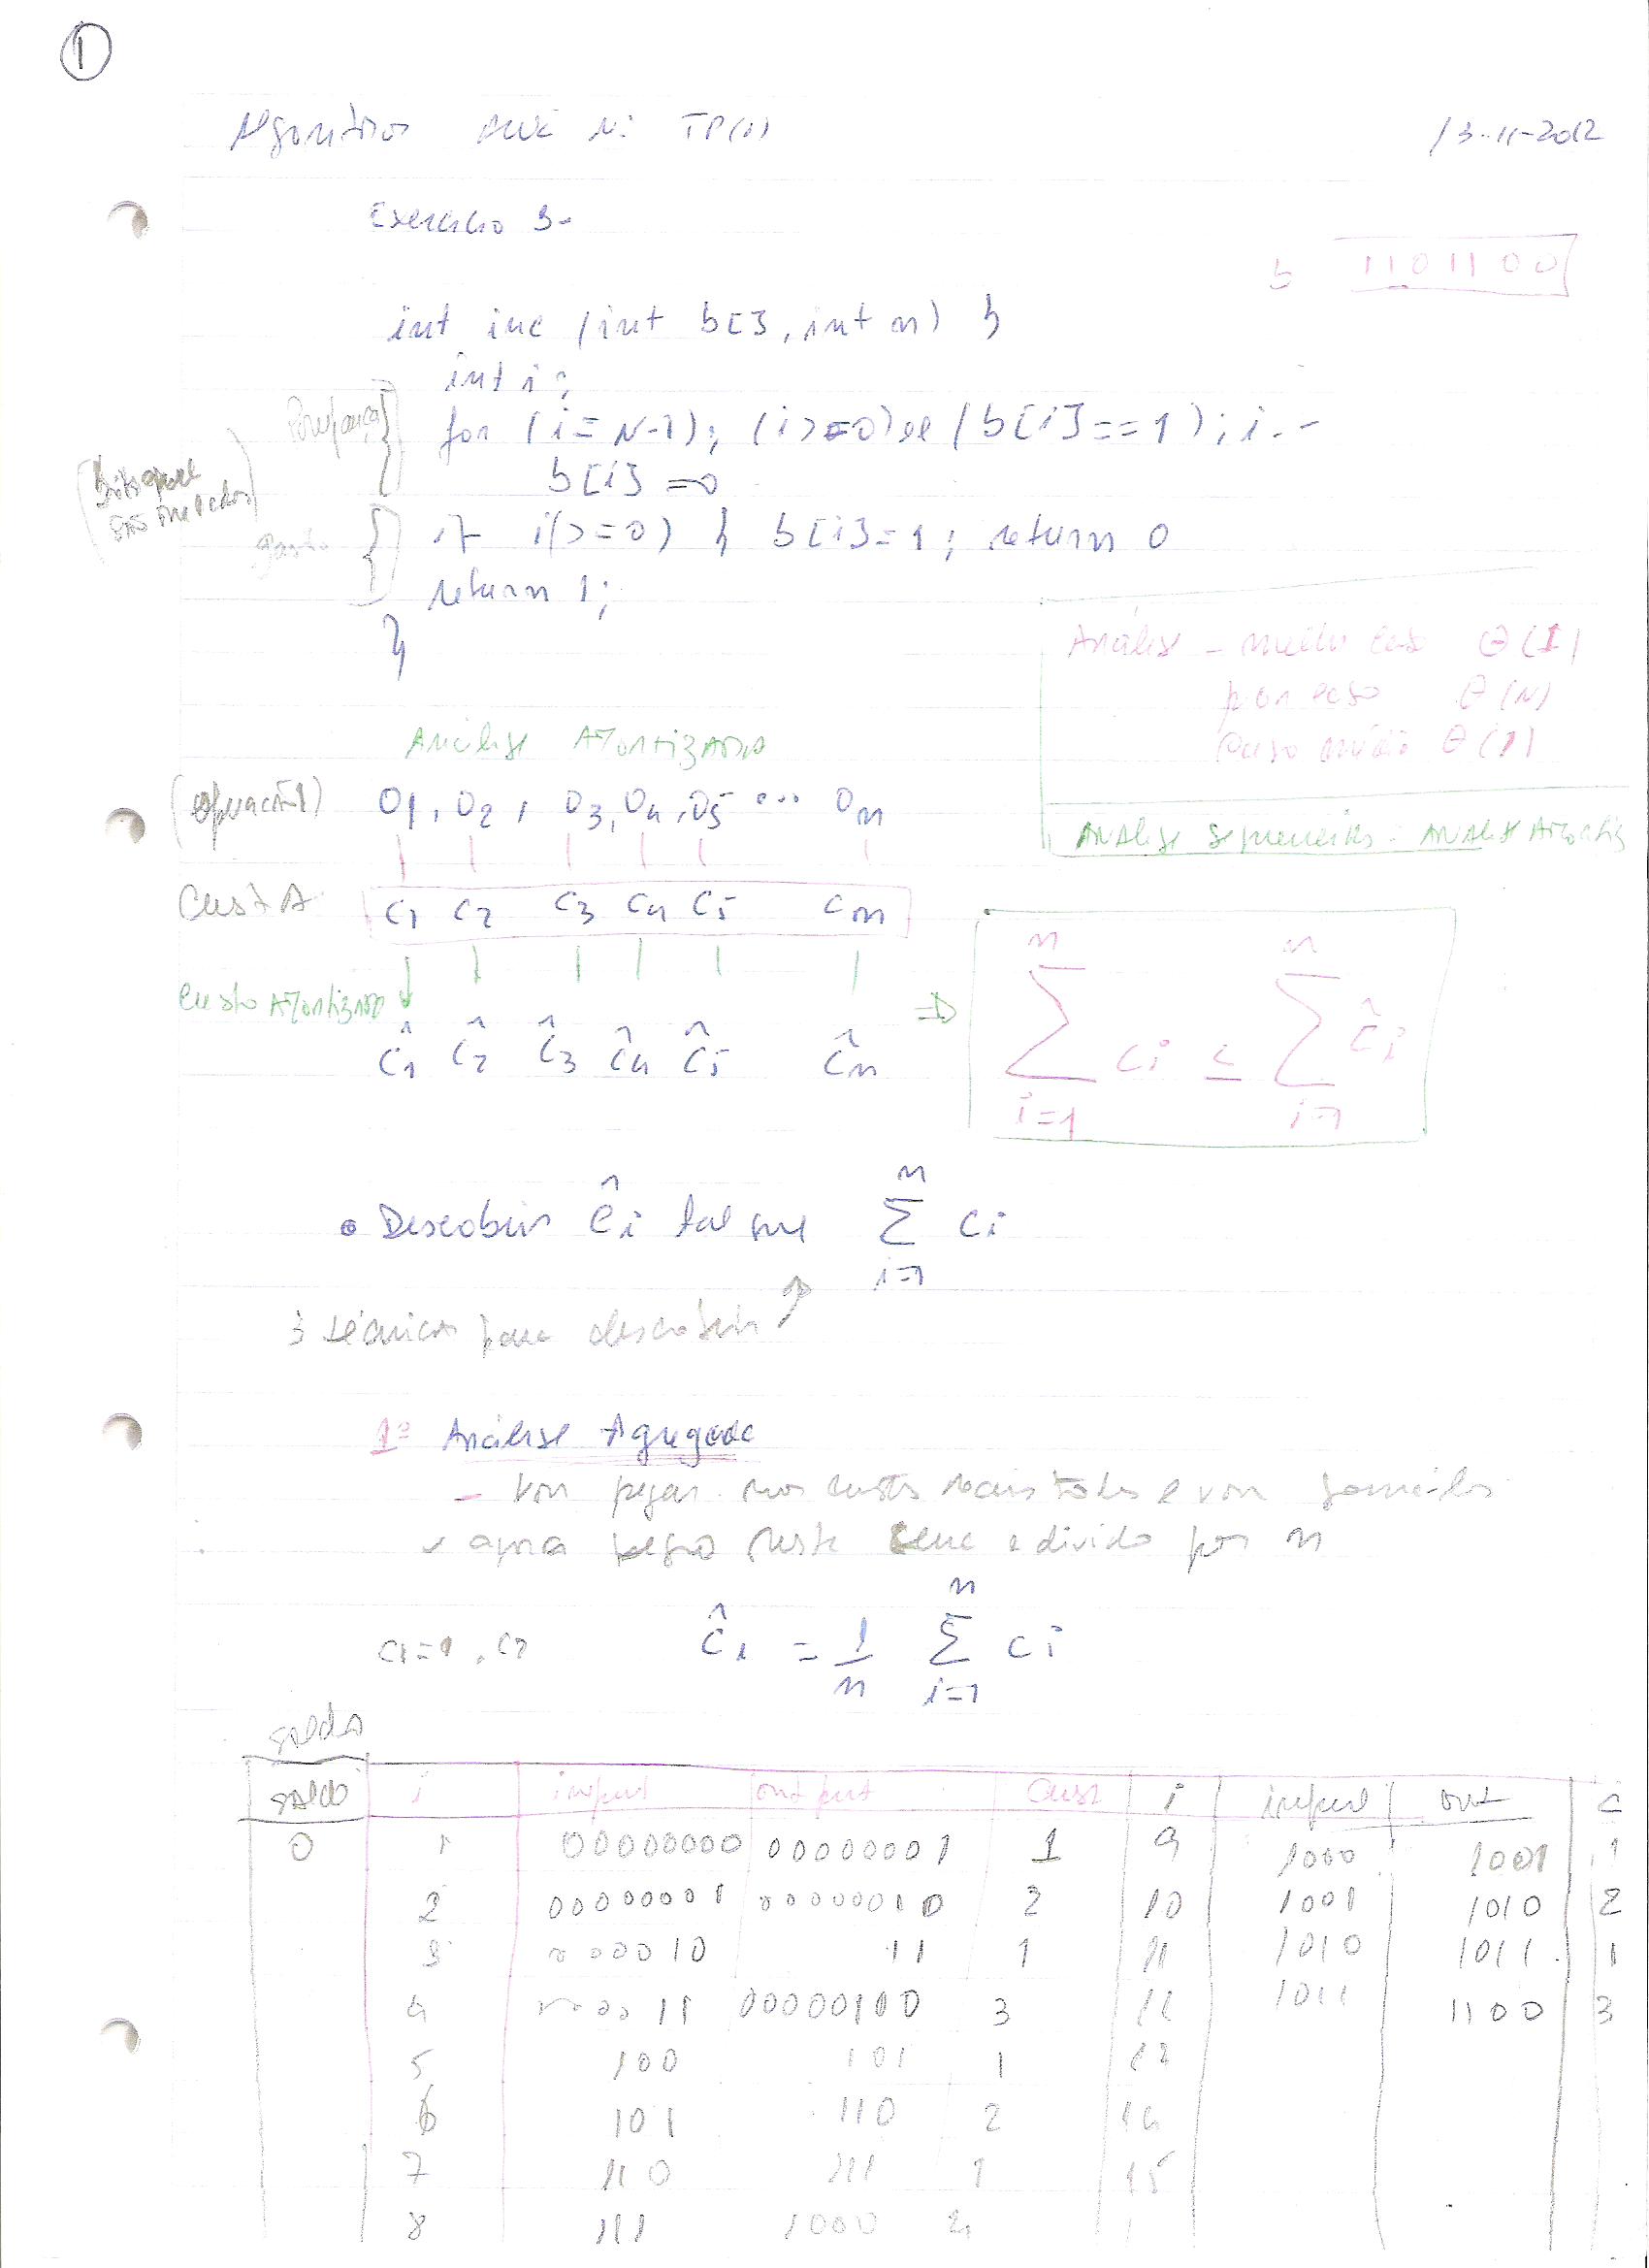 1
Algoritmos Aula Nº TP(1) 13-11-2012
Exercício 3-
b 1101100
int inc (int b[], int n) {
int i;
Poupança for (i=N-1); (i>=0) && (b[i]==1); i--
b[i]=0
gasto if i(>=0) { b[i]=1; return 0
return 1;
}
Análise - melhor caso Θ(1)
pior caso Θ(N)
caso médio Θ(1)
Análise Amortizada
(operações) O1, O2, O3, O4, O5 ... On
Análise sequencias - Análise Amortiz
Custo c1 c2 c3 c4 c5 cn
Custo Amortizado
ĉ1 ĉ2 ĉ3 ĉ4 ĉ5 ĉn
=> n ∑ i=1 ci ≤ n ∑ i=1 ĉi
• Descobrir ĉi tal que n ∑ i=1 ci
3 técnicas para descobrir
1º Análise Agregada
- vou pegar nos custos reais todos e vou somá-los
agora pego neste e divido por n
c1=1, c2 ĉi = 1/n n ∑ i=1 ci
saldo
saldo i input output Cust i input out C
0 1 00000000 00000001 1 9 1000 1001 1
2 00000001 00000010 2 10 1001 1010 2
3 000010 11 1 11 1010 1011 1
4 11 00000100 3 12 1011 1100 3
5 100 101 1 13
6 101 110 2 14
7 110 111 1 15
8 111 1000 4